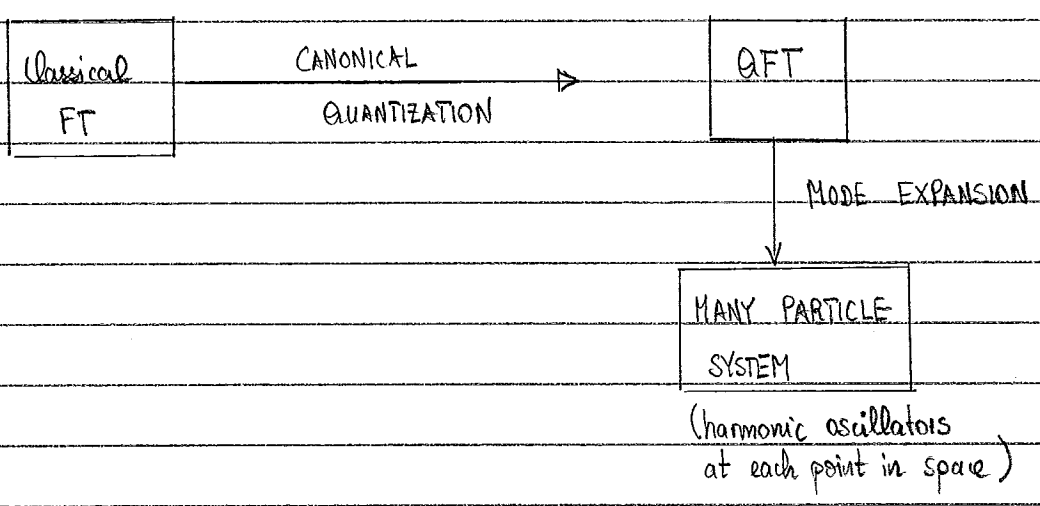 Classical
FT
CANONICAL
QUANTIZATION
QFT
MODE EXPANSION
MANY PARTICLE
SYSTEM
(harmonic oscillators
at each point in space)